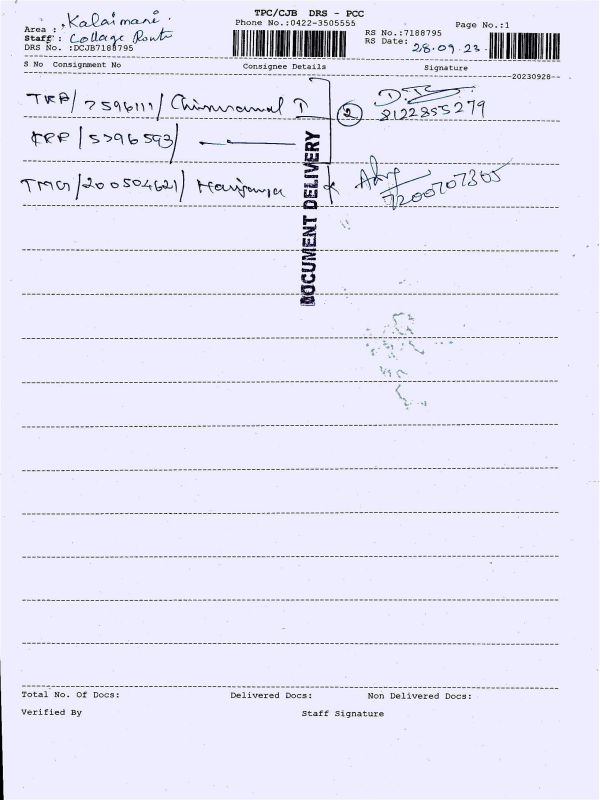 TPC/CJB DRS - PCC
Phone No.:0422-3505555
Page No.:1
Area : Kalaimani
Staff : College Route
DRS No. :DCJB7188795
RS No.:7188795
RS Date: 28.09.23
S No Consignment No Consignee Details Signature
20230928
7596111/ 2 8122855279
5796593/
TMG/200504621/ 7200707365
DOCUMENT DELIVERY
Total No. Of Docs: Delivered Docs: Non Delivered Docs:
Verified By Staff Signature